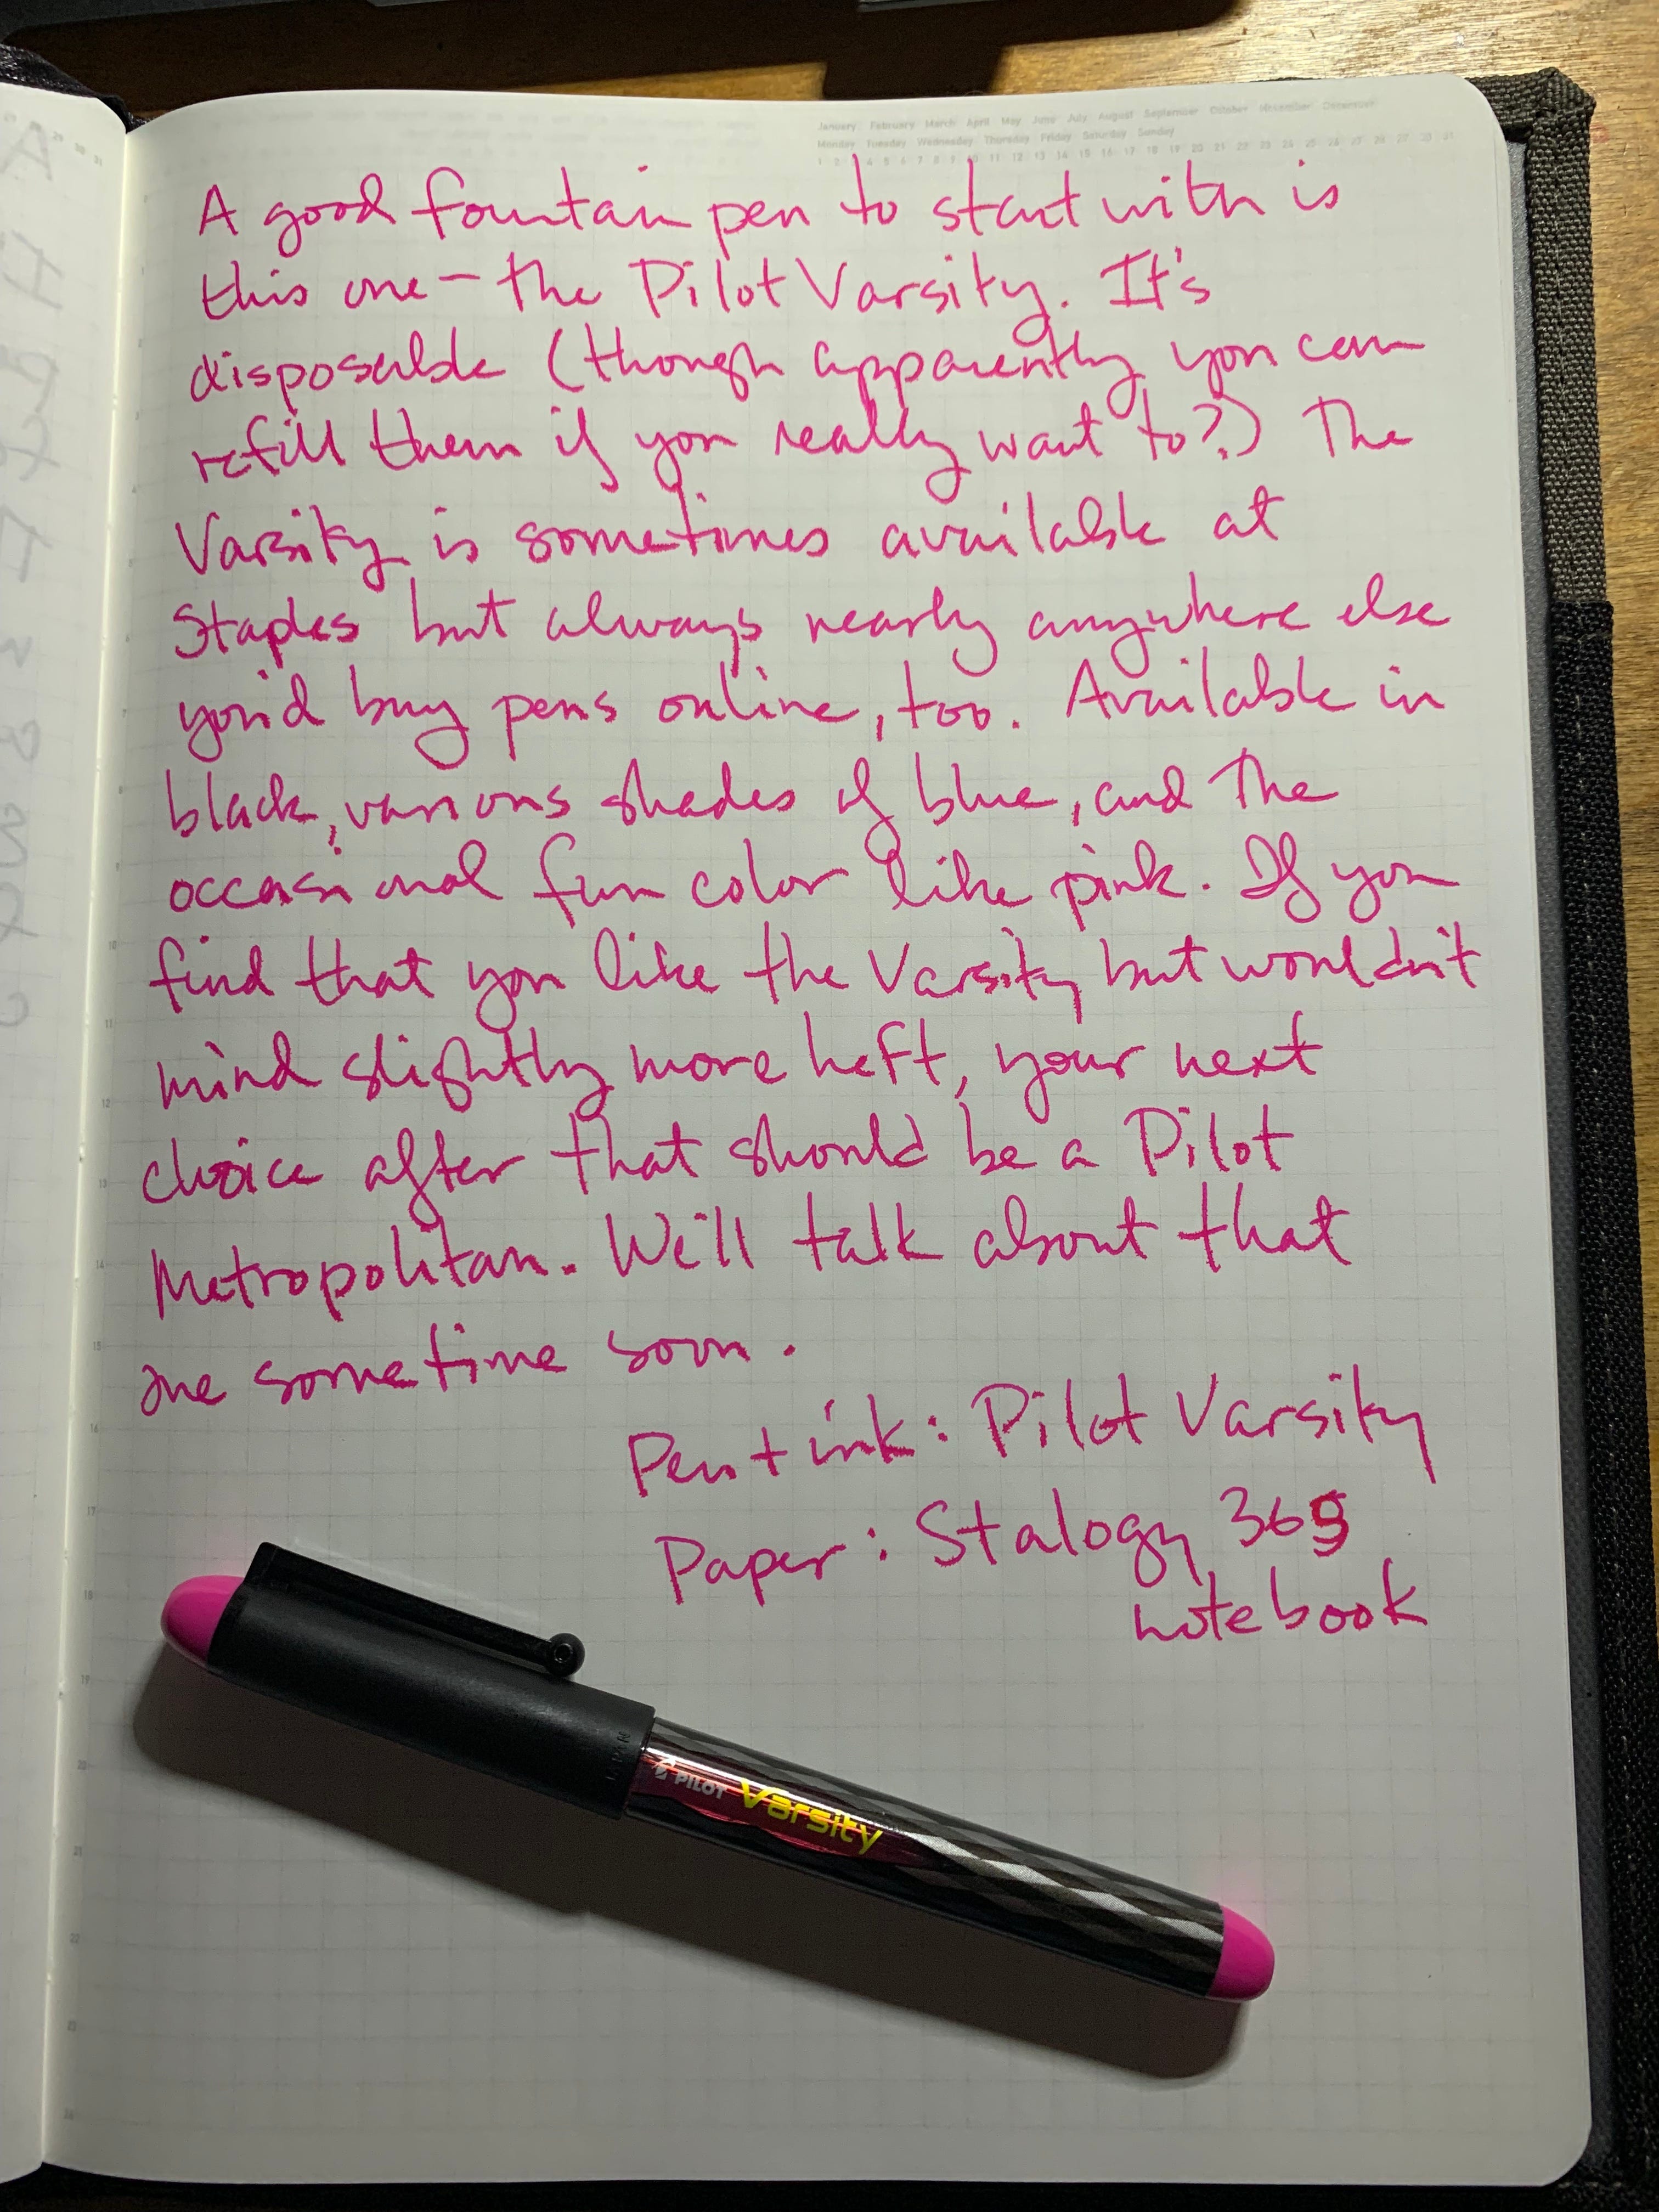 January February March April May June July August September October November December
Monday Tuesday Wednesday Thursday Friday Saturday Sunday
A good fountain pen to start with is
this one – the Pilot Varsity. It's
disposable (though apparently you can
refill them if you really want to?) The
Varsity is sometimes available at
Staples but always nearly anywhere else
you'd buy pens online, too. Available in
black, various shades of blue, and the
occasional fun color like pink. If you
find that you like the Varsity but wouldn't
mind slightly more heft, your next
choice after that should be a Pilot
Metropolitan. We'll talk about that
one sometime soon.
Pen + ink: Pilot Varsity
Paper: Stalogy 365
notebook
PILOT Varsity